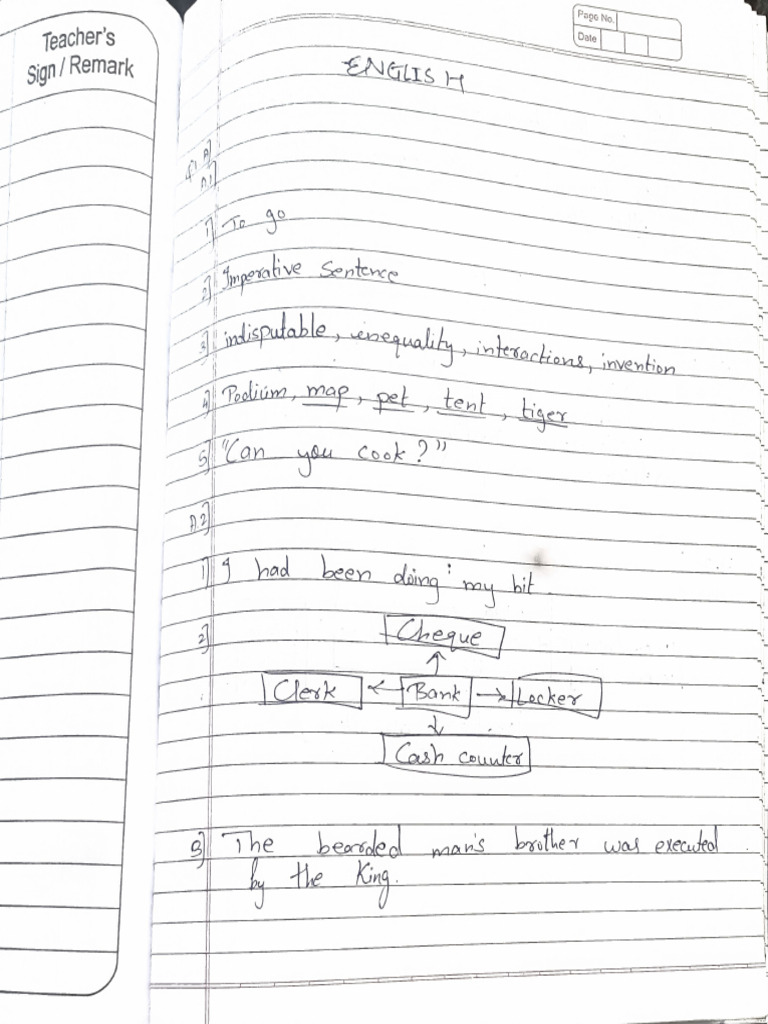 Teacher's
Sign / Remark
Page No.
Date
ENGLISH
A.1]
1] To go
2] Imperative Sentence
3] indisputable, inequality, interactions, invention
4] Podium, map, pet, tent, tiger
5] "Can you cook?"
A.2]
1] I had been doing my bit.
2]
Cheque
Clerk ← Bank → Locker
Cash counter
3] The bearded man's brother was executed
by the King.